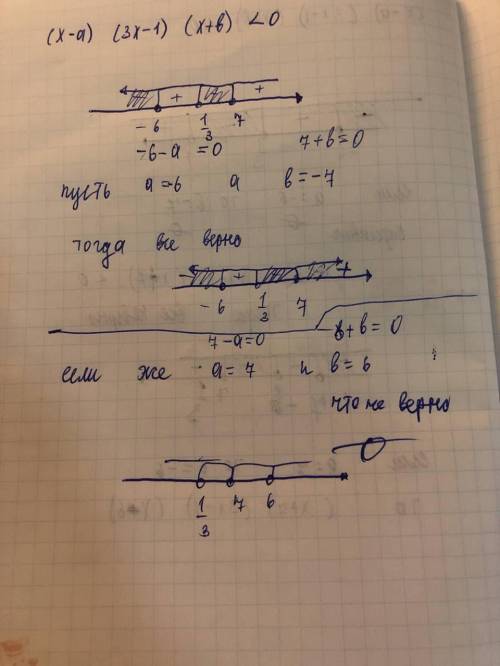 (x-a) (3x-1) (x+b) <0
+ +
-6 1/3 7
-6-a =0 7+b=0
пусть a=6 а b=-7
тогда все верно
+ +
-6 1/3 7
7-a=0 -6+b=0
если же a=7 и b=6
что не верно
1/3 7 6